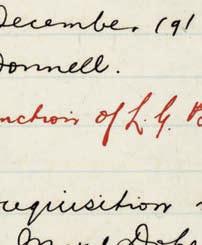 December, 191
Donnell.
nction of L. G. B
requisition